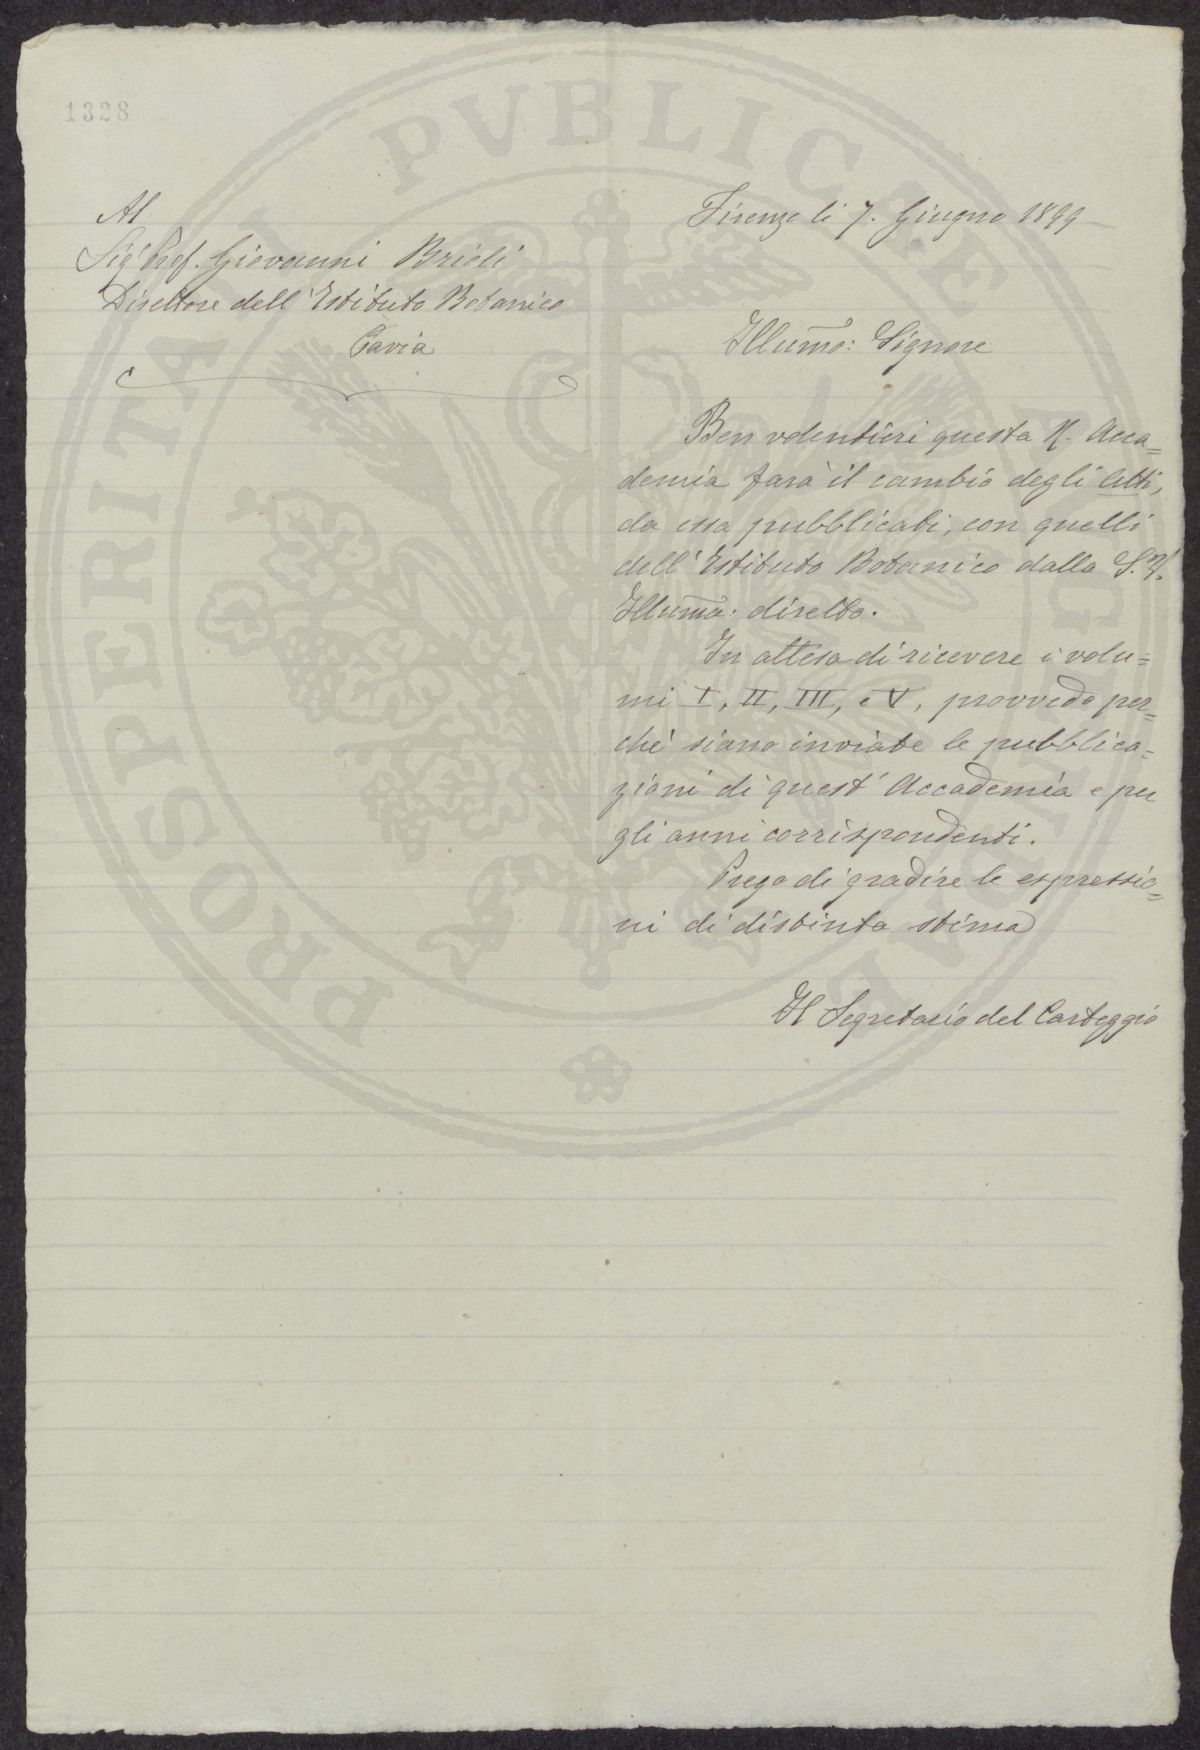 1328
Al
Sigr Prof. Giovanni Briosi
Direttore dell'Istituto Botanico
Pavia
Firenze li 7. Giugno 1899
Illumo: Signore
Ben volentieri questa R. Acca=
demia farà il cambio degli Atti,
da essa pubblicati, con quelli
dell'Istituto Botanico dalla S.V.
Illuma. diretto.
In attesa di ricevere i volu=
mi I, II, III, e V, provvedo per=
chè siano inviate le pubblica=
zioni di quest'Accademia e per
gli anni corrispondenti.
Prego di gradire le espressio=
ni di distinta stima
Il Segretario del Carteggio
PROSPERITATI PVBLICAE